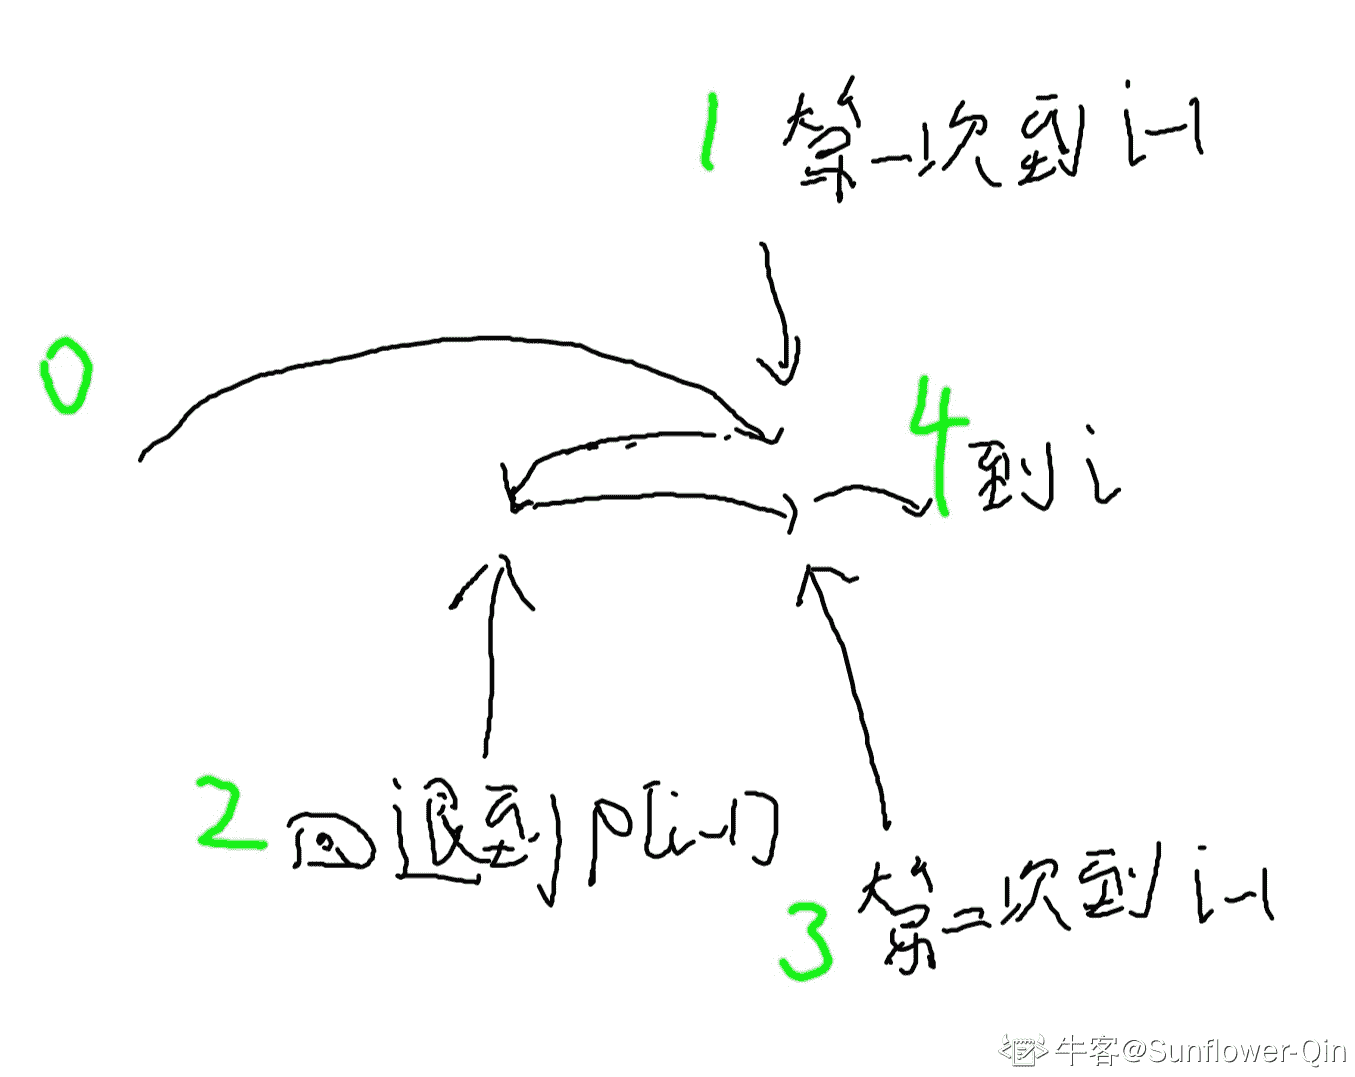 1 第一次到 i-1
0
4 到 i
2 回退到 p[i-1]
3 第二次到 i-1
牛客@Sunflower-Qin